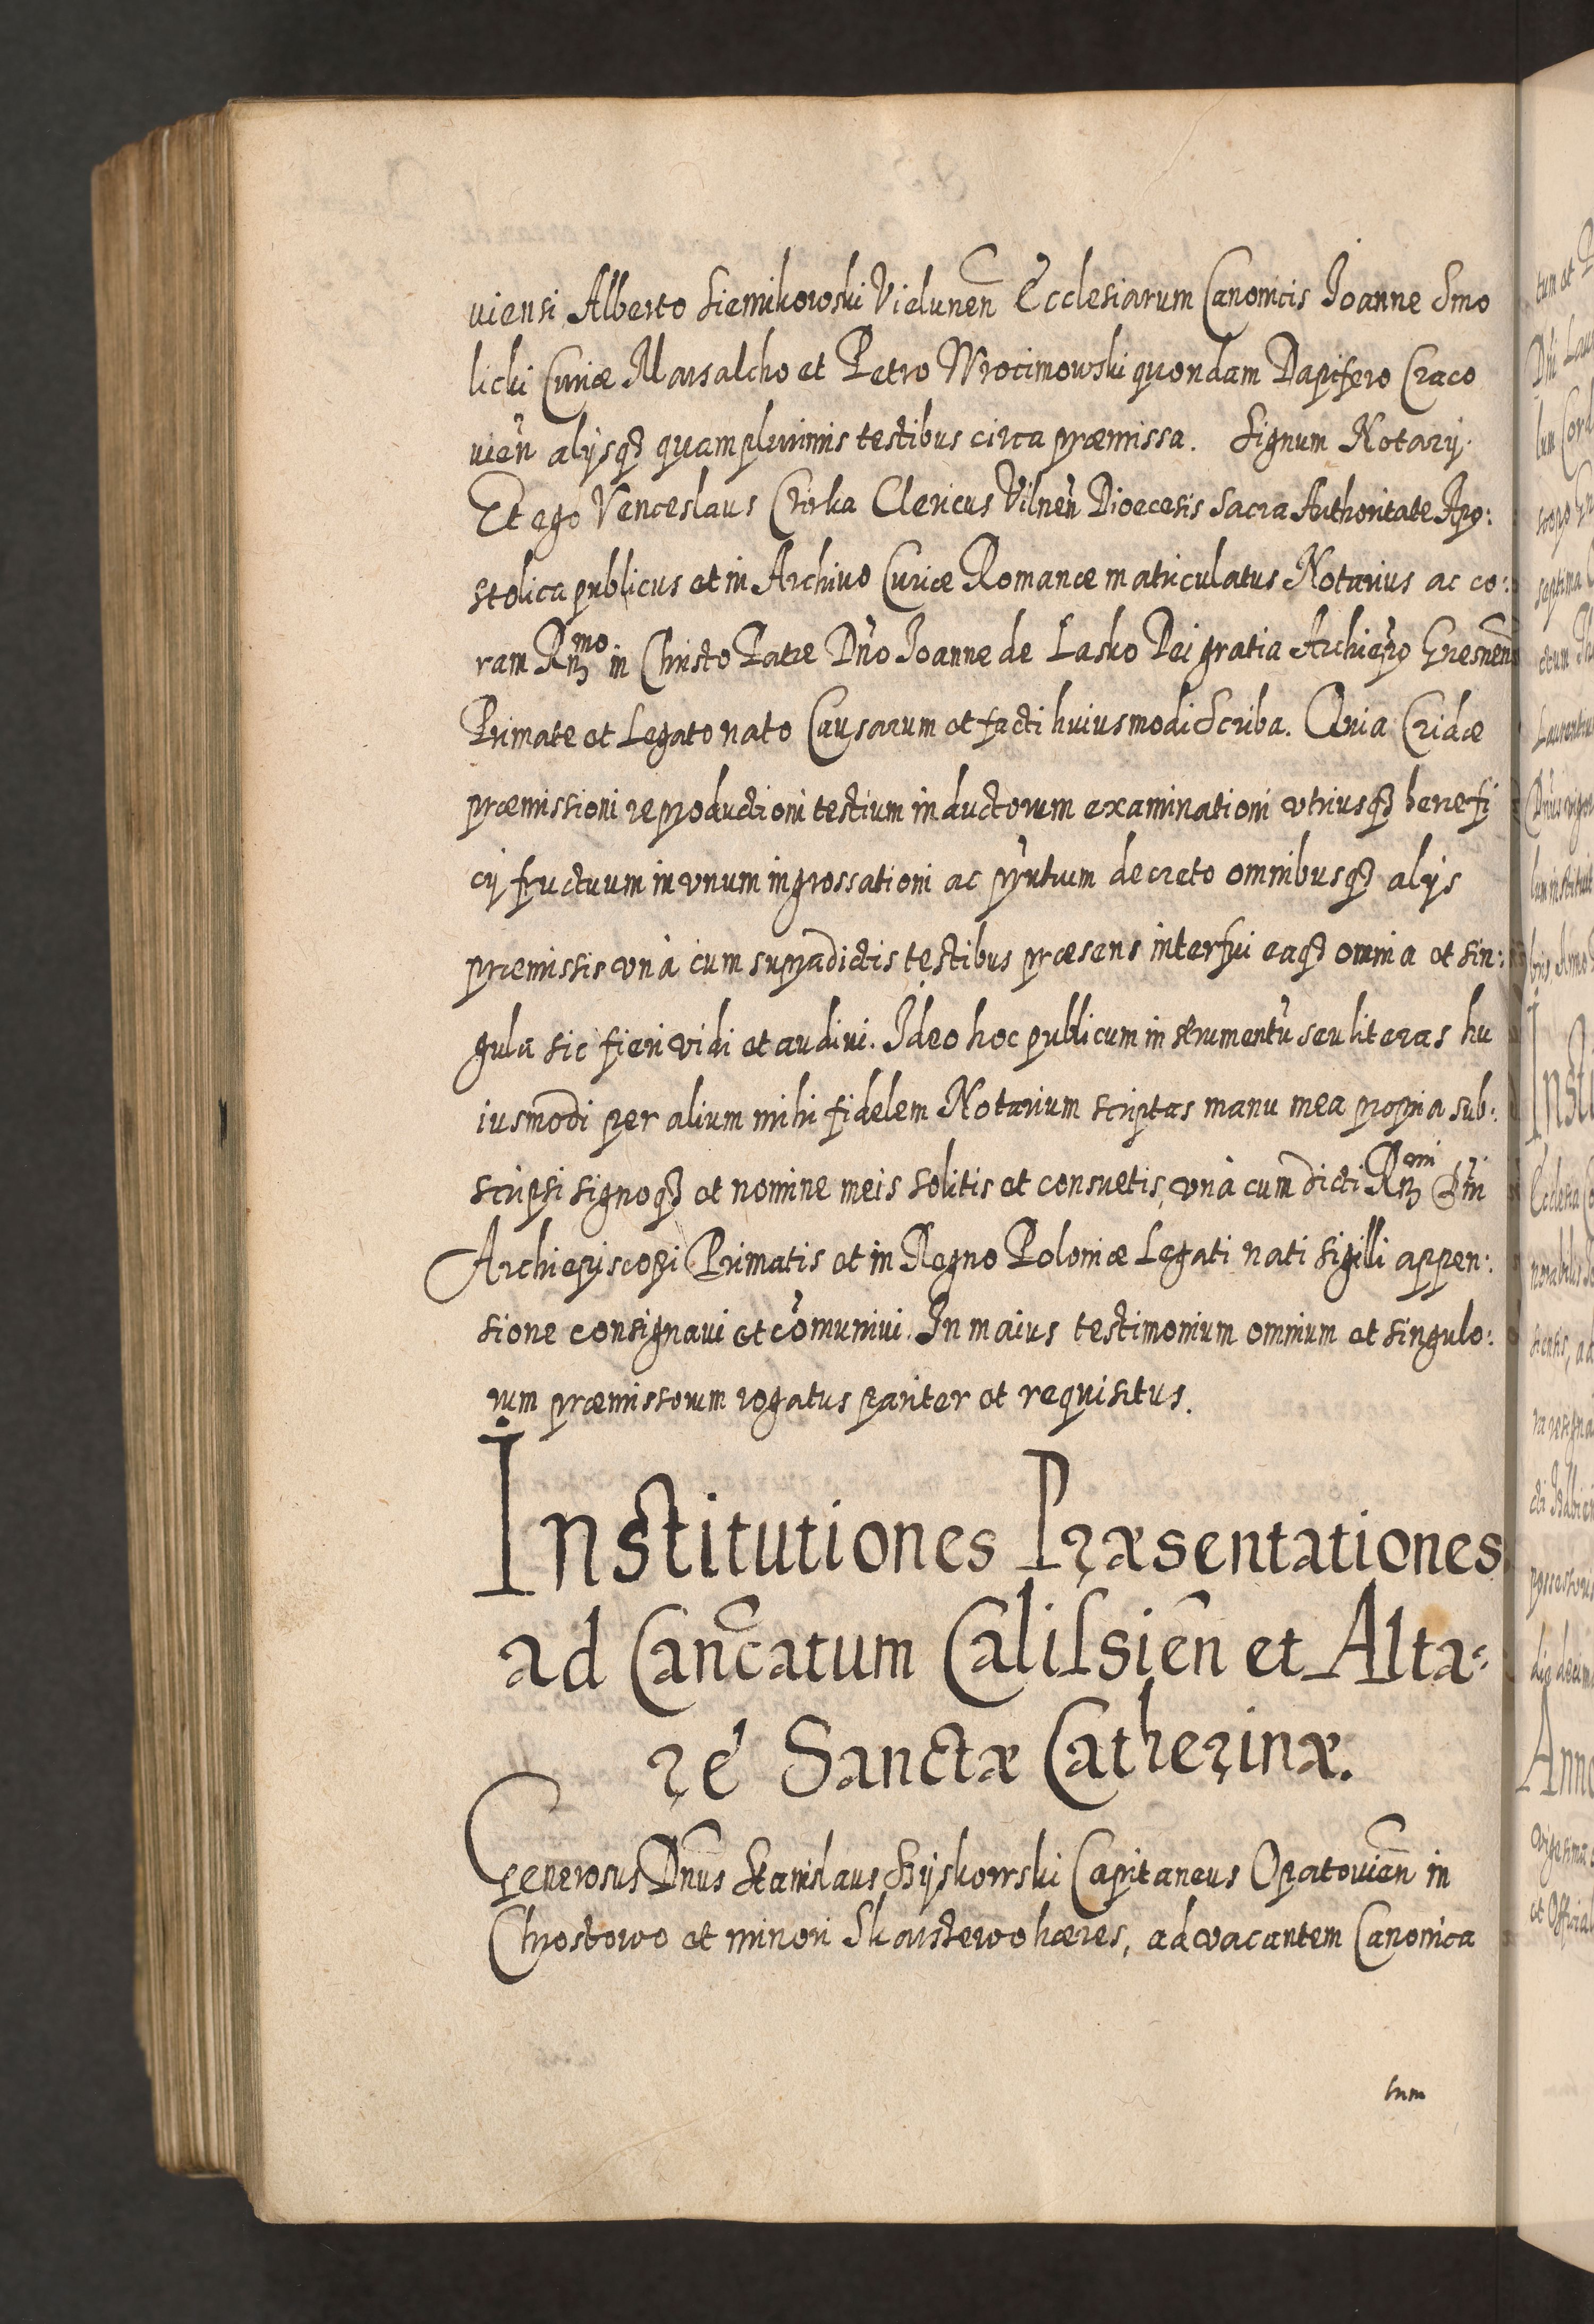 uiensi Alberto Siemikowski Vielunen̄ Ecclesiarum Canonicis Joanne Smo
licki Curiæ Marsalcho et Petro Wrocimowski quondam Dapifero Craco
uien̄ alysq₃ quamplurimis testibus circa præmissa. Signum Notarÿ.
Et ego Venceslaus Chirka Clericus Vilnen̄ Dioecesis Sacra Authoritate Apo:
stolica publicus et in Archiuo Curiæ Romanæ matriculatus Notarius ac co:
ram R̄mo in Christo Patre Dn̄o Joanne de Lasko Dei gratia Archiep̄o Gnesnen̄
Primate et Legato nato Causarum et facti huiusmodi Scriba. Quia Cridæ
præmissioni reproductioni testium inductorum examinationi vtriusq₃ benefi
cÿ fructuum in vnum ingrossationi ac pn̄tium decreto omnibusq₃ alÿs
præmissis vnà cum supradictis testibus præsens interfui eaq₃ omnia et sin:
gula sic fieri vidi et audiui. Ideo hoc publicum instrumentū seu literas hu
iusmodi per alium mihi fidelem Notarium scriptas manu mea propria sub:
scripsi signoq₃ et nomine meis solitis et consuetis, vnà cum dicti R̄mi Dn̄i
Archiepiscopi Primatis et in Regno Poloniæ Legati nati sigilli appen:
sione consignaui et cōmuniui. In maius testimonium omnium et singulo:
rum præmissorum rogatus pariter et requisitus.
Institutiones Præsentationes
ad Can̄catum Calissien̄ et Alta-
re Sanctæ Catherinæ.
Generosus Dn̄us Stanislaus Capitaneus Opatouien̄ in
Chrostowo et minori Skarstewo hæres, ad vacantem Canonica
tum